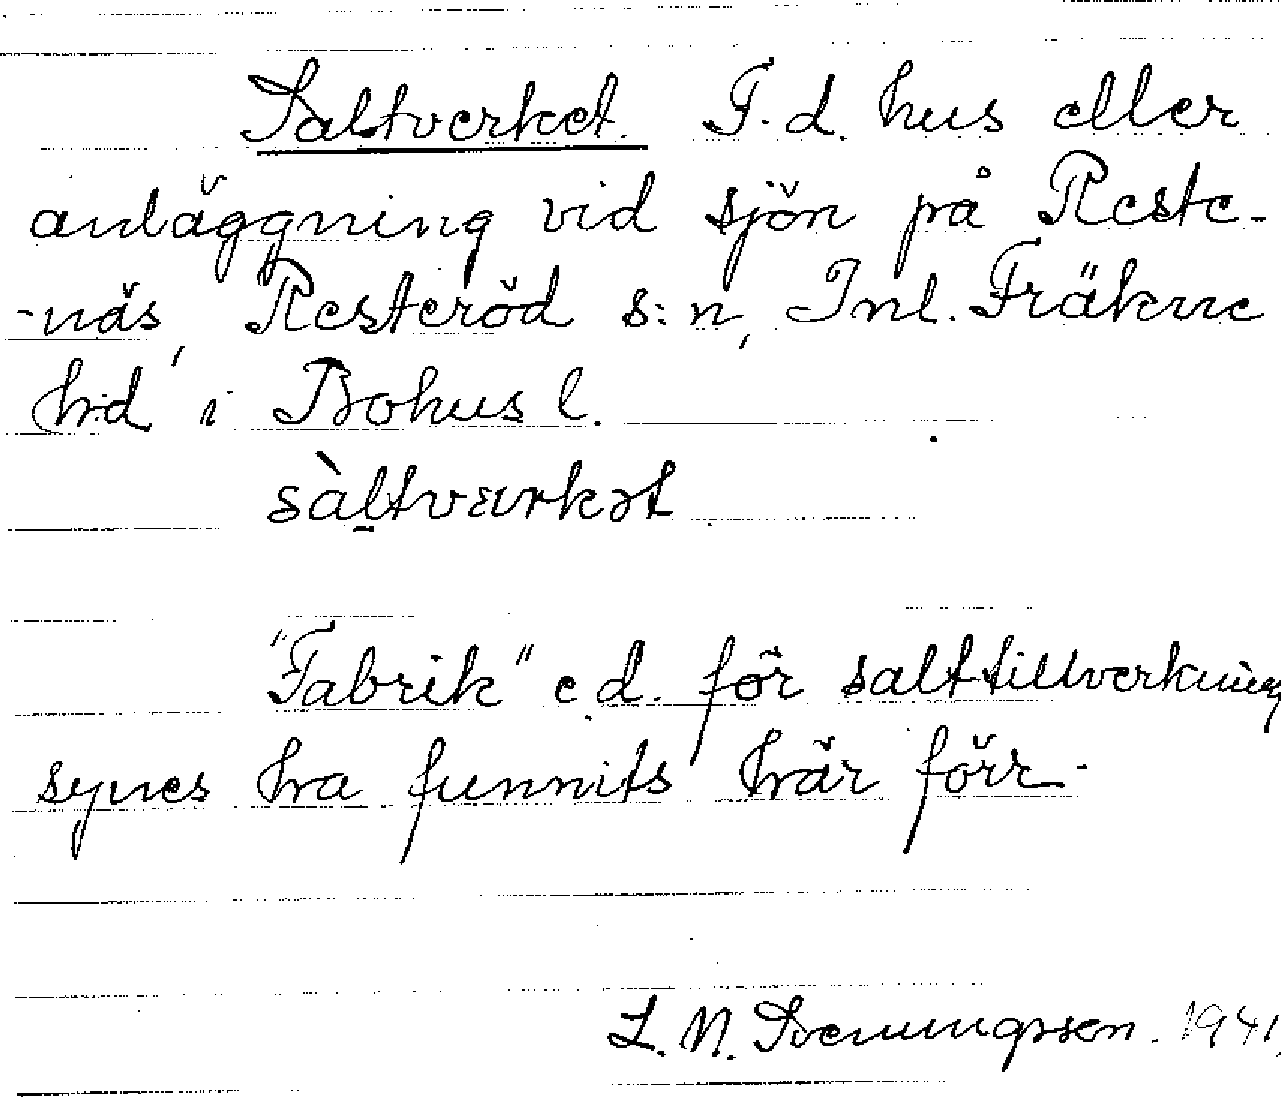 Saltverket. F.d. hus eller
anläggning vid sjön på Reste-
-näs, Resteröd s:n, Inl. Fräkne
hd i Bohusl.
sàltvärkət
"Fabrik" e.d. för salttillverkning
synes ha funnits här förr.
L. N. Svenungsson. 1941.